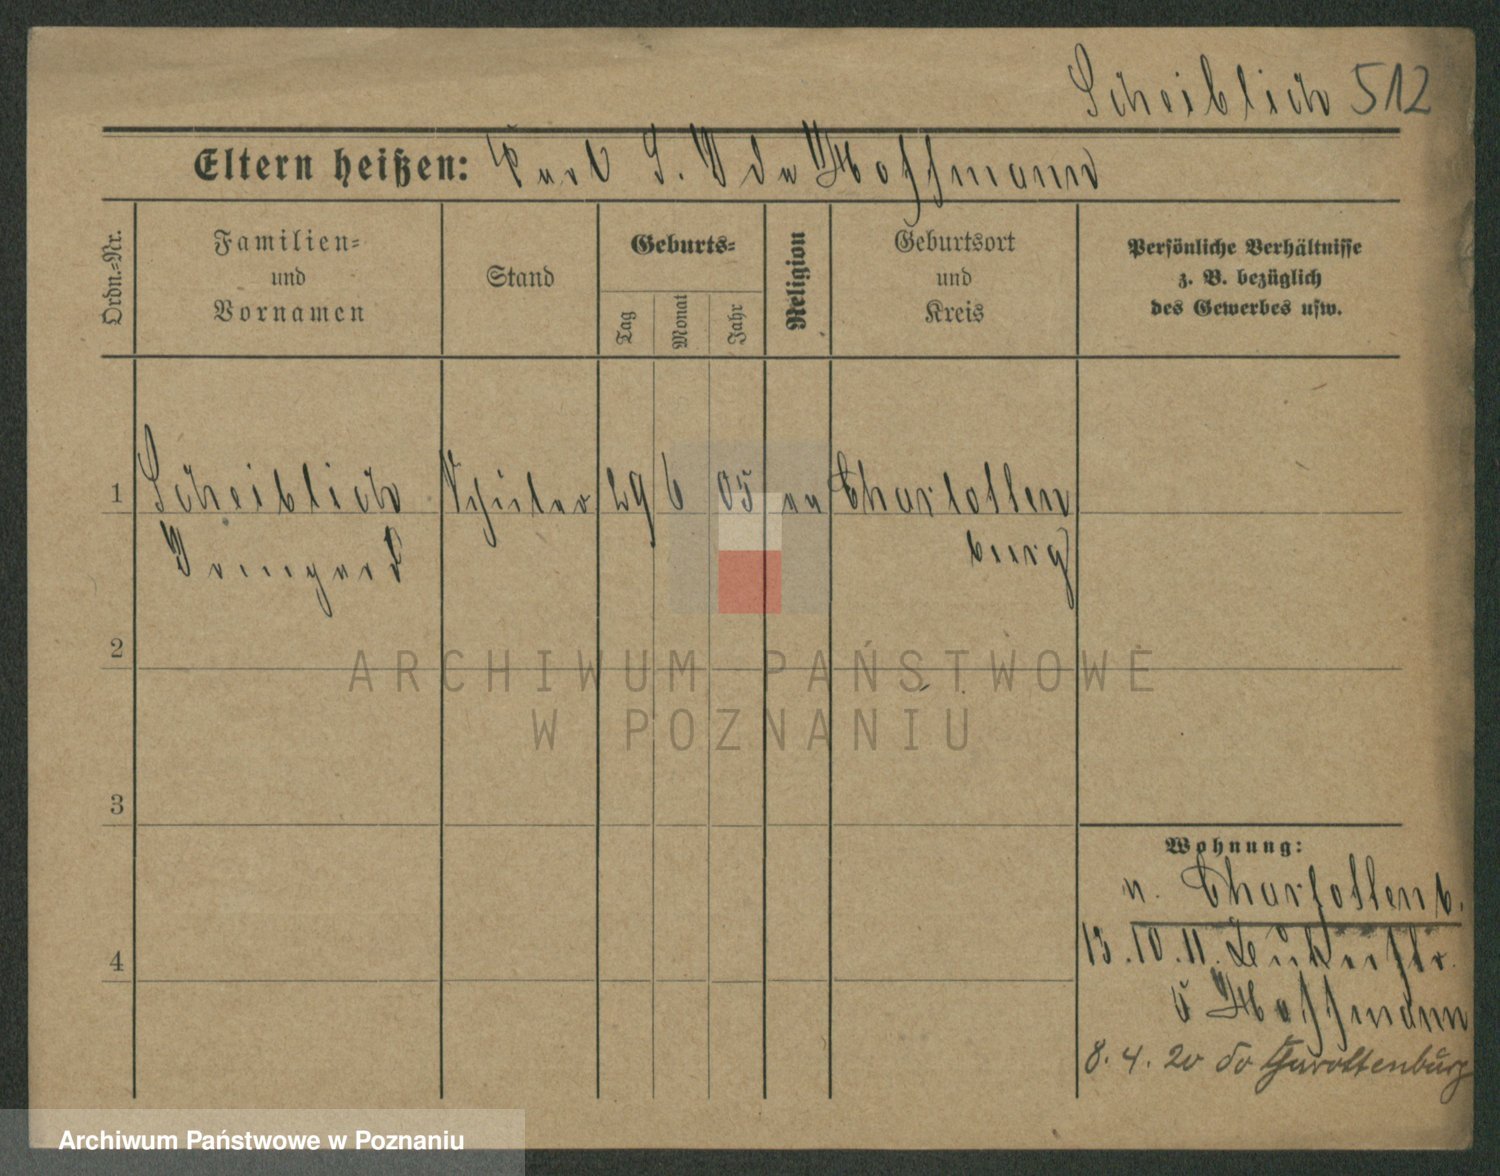 Scheiblich 512
Eltern heißen: Karl S. Ida Hoffmann
Ordn.-Nr.
Familien-
und
Vornamen
Stand
Geburts-
Tag
Monat
Jahr
Religion
Geburtsort
und
Kreis
Persönliche Verhältnisse
z. B. bezüglich
des Gewerbes usw.
1 Scheiblich Schüler 29 6 05 ev Charlotten
Irmgard burg
2
ARCHIWUM PAŃSTWOWE
W POZNANIU
3
Wohnung:
n. Charlottenb.
4
13.10.11.
Hoffmann
8. 4. 20
Archiwum Państwowe w Poznaniu